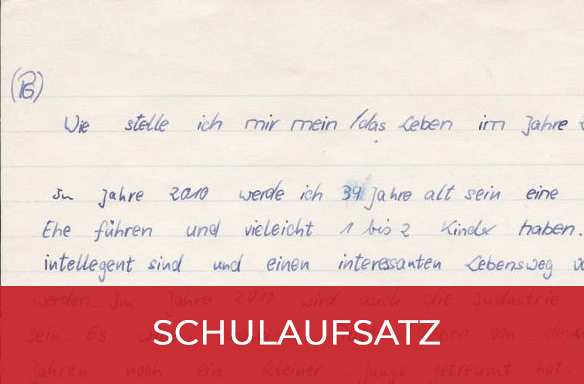 (B)
Wie stelle ich mir mein /das Leben im Jahre
In Jahre 2010 werde ich 34 Jahre alt sein eine
Ehe führen und vieleicht 1 bis 2 Kinder haben.
intellegent sind und einen interessanten Lebensweg
werden. Im Jahre 2010 wird auch die Industrie
SCHULAUFSATZ
sein Es
Jahren noch ein kleiner Junge erträumt hat